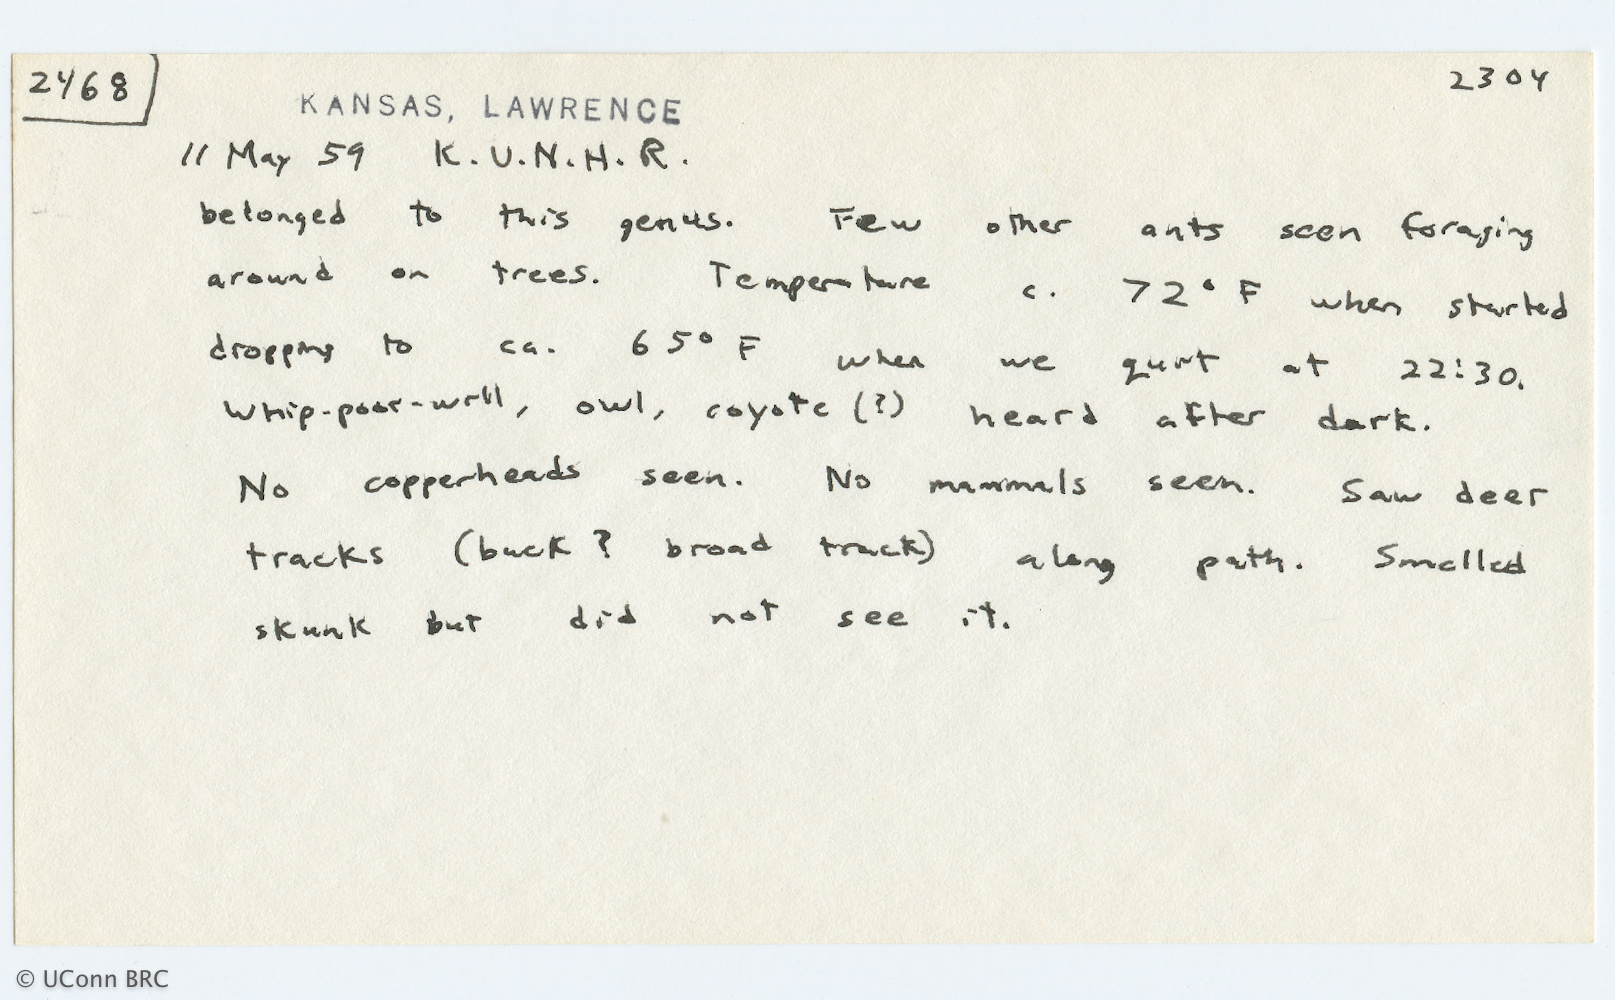 2468
2304
KANSAS, LAWRENCE
11 May 59 K.U.N.H.R.
belonged to this genus. Few other ants seen foraging
around on trees. Temperature c. 72° F when started
dropping to ca. 65° F when we quit at 22:30.
Whip-poor-will, owl, coyote (?) heard after dark.
No copperheads seen. No mammals seen. Saw deer
tracks (buck? broad track) along path. Smelled
skunk but did not see it.
© UConn BRC